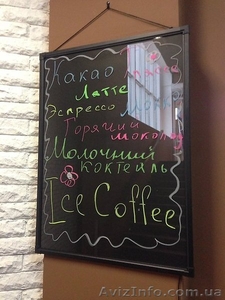 Какао
Латте
Эспрессо Мокко
Горячий
шоколад
Молочный
коктейль
Ice Coffee
AvizInfo.com.ua